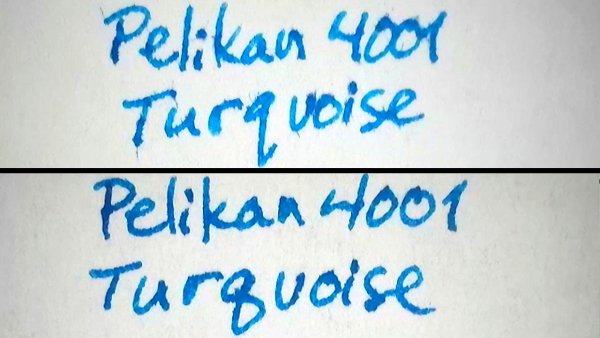 Pelikan 4001
Turquoise
Pelikan 4001
Turquoise